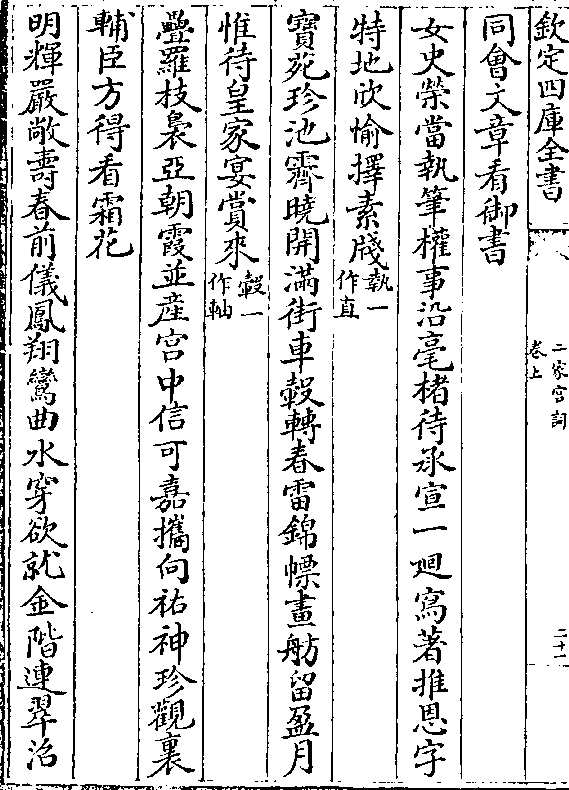 欽定四庫全書
二家宮詞
卷上
二十一
同會文章看御書
女史榮當執筆權事沿毫楮待承宣一廻寫著推恩字
特地欣愉擇素牋執一作直
寳苑珍池霽曉開滿街車轂轉春雷錦幖畫舫留盈月
惟待皇家宴賞來轂一作軸
疊羅枝裊亞朝霞並産宫中信可嘉攜向祐神珍觀裏
輔臣方得看霜花
明輝嚴敞夀春前儀鳳翔鸞曲水穿欲就金階連翠治